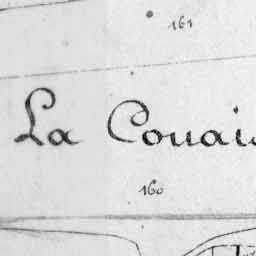 161
La Couai
160